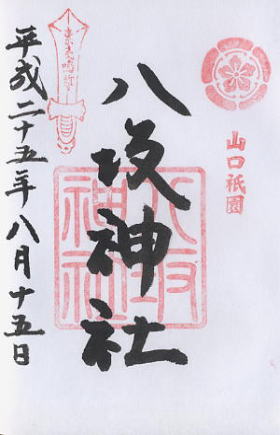 山口祇園
八坂神社
八坂神社
平成二十五年八月十五日